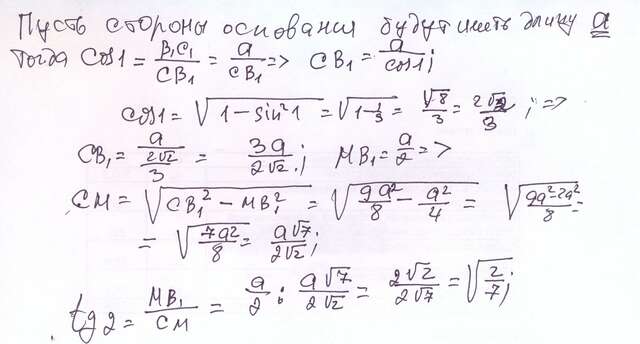 Пусть стороны основания будут иметь длину a
тогда cos1 = B₁C₁/CB₁ = a/CB₁ => CB₁ = a/cos1;
cos1 = √(1 - sin²1) = √(1 - 1/3) = √8/3 = 2√2/3; =>
CB₁ = a/(2√2/3) = 3a/2√2; MB₁ = a/2 =>
CM = √(CB₁² - MB₁²) = √(9a²/8 - a²/4) = √((9a² - 2a²)/8) =
= √(7a²/8) = a√7/2√2;
tg2 = MB₁/CM = a/2 : a√7/2√2 = 2√2/2√7 = √(2/7);